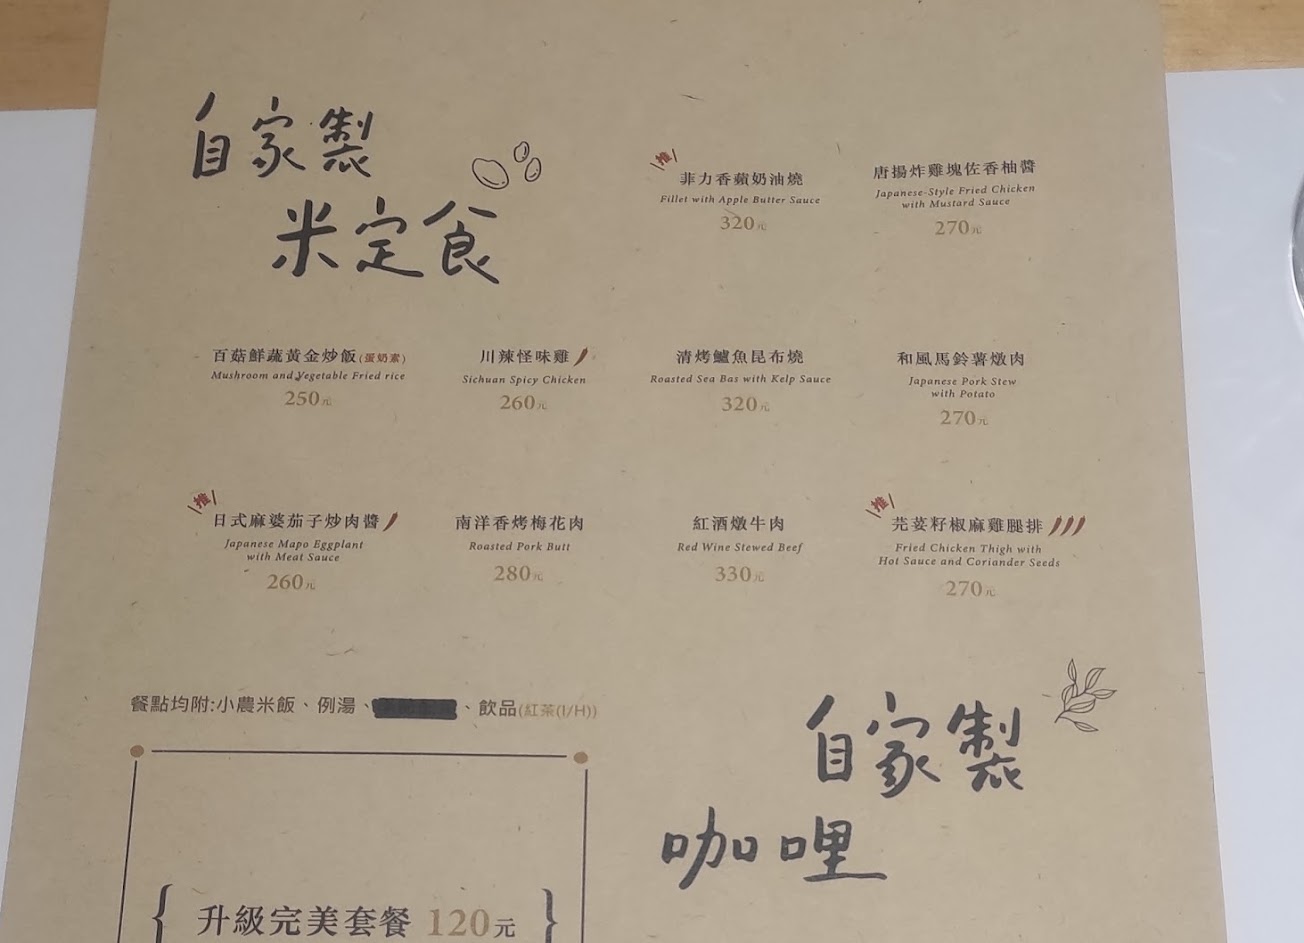 自家製
米定食
推
菲力香蘋奶油燒
Fillet with Apple Butter Sauce
320元
唐揚炸雞塊佐香柚醬
Japanese-Style Fried Chicken
with Mustard Sauce
270元
百菇鮮蔬黃金炒飯(蛋奶素)
Mushroom and Vegetable Fried rice
250元
川辣怪味雞
Sichuan Spicy Chicken
260元
清烤鱸魚昆布燒
Roasted Sea Bas with Kelp Sauce
320元
和風馬鈴薯燉肉
Japanese Pork Stew
with Potato
270元
推
日式麻婆茄子炒肉醬
Japanese Mapo Eggplant
with Meat Sauce
260元
南洋香烤梅花肉
Roasted Pork Butt
280元
紅酒燉牛肉
Red Wine Stewed Beef
330元
推
芫荽籽椒麻雞腿排
Fried Chicken Thigh with
Hot Sauce and Coriander Seeds
270元
餐點均附:小農米飯、例湯、、飲品(紅茶(I/H))
自家製
咖哩
{升級完美套餐 120元}